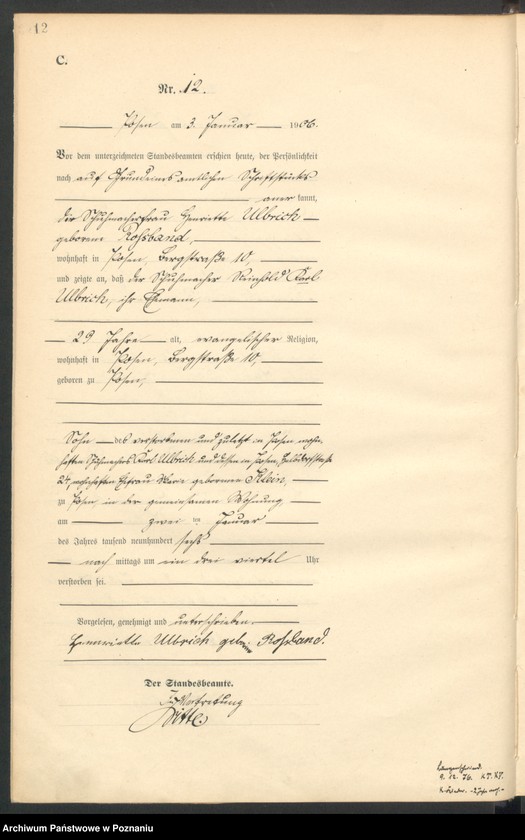 12
C.
Nr. 12.
Posen am 3. Januar 1906.
Vor dem unterzeichneten Standesbeamten erschien heute, der Persönlichkeit
nach auf Grund eines amtlichen Schriftstücks
anerkannt,
die Schuhmacherfrau Henriette Ulbrich
geborene Roßband,
wohnhaft in Posen, Bergstraße 10,
und zeigte an, daß der Schuhmacher Reinhold Karl
Ulbrich, ihr Ehemann,
29 Jahre alt, evangelischer Religion,
wohnhaft in Posen, Bergstraße 10,
geboren zu Posen,
Sohn des verstorbenen und zuletzt in Posen wohn-
haften Schuhmachers Karl Ulbrich und dessen in Posen,
24, wohnhaften Ehefrau Marie geborenen Klein,
zu Posen, in der gemeinsamen Wohnung
am zwei ten Januar
des Jahres tausend neunhundert sechs
nach mittags um ein drei viertel Uhr
verstorben sei.
Vorgelesen, genehmigt und unterschrieben.
Henriette Ulbrich geb. Rossband.
Der Standesbeamte.
In Vertretung
9. 12. 76.
Archiwum Państwowe w Poznaniu